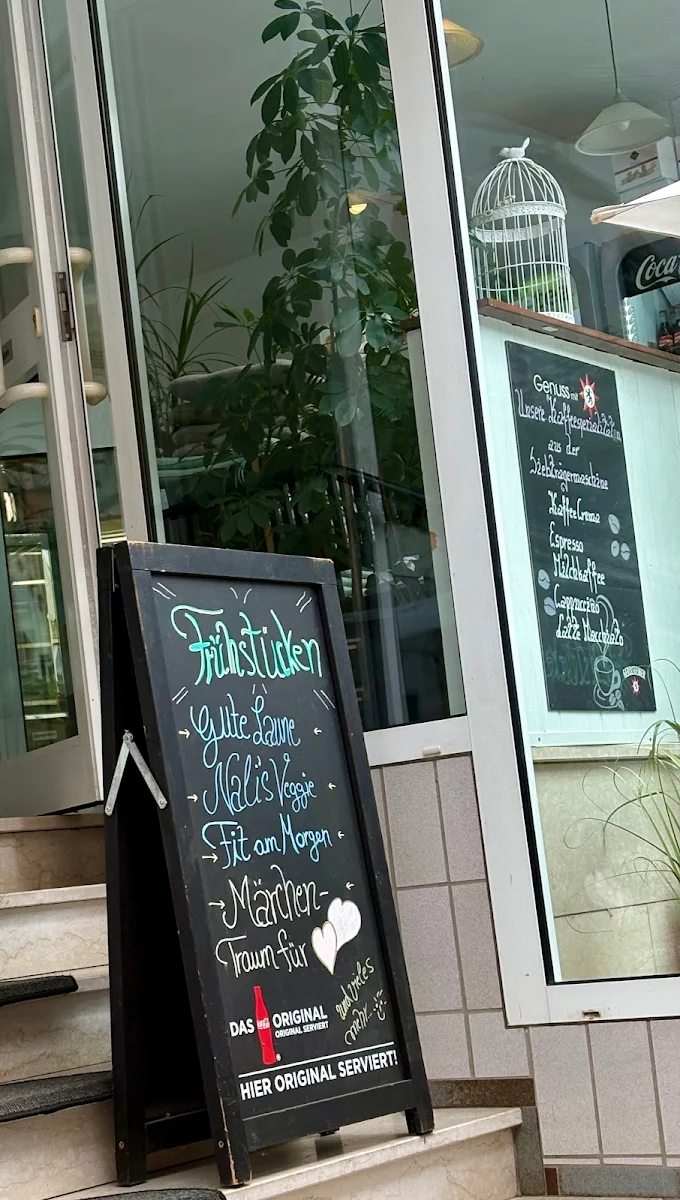 Frühstücken
Gute Laune
Nali's Veggie
Fit am Morgen
Märchen-
Traum für
und vieles
mehr...
DAS ORIGINAL
ORIGINAL SERVIERT
HIER ORIGINAL SERVIERT!
Genuss mit
Unsere Kaffeespezialitäten
aus der
Siebträgermaschine
Kaffee Crema
Espresso
Milchkaffee
Cappuccino
Latte Macchiato
Coca